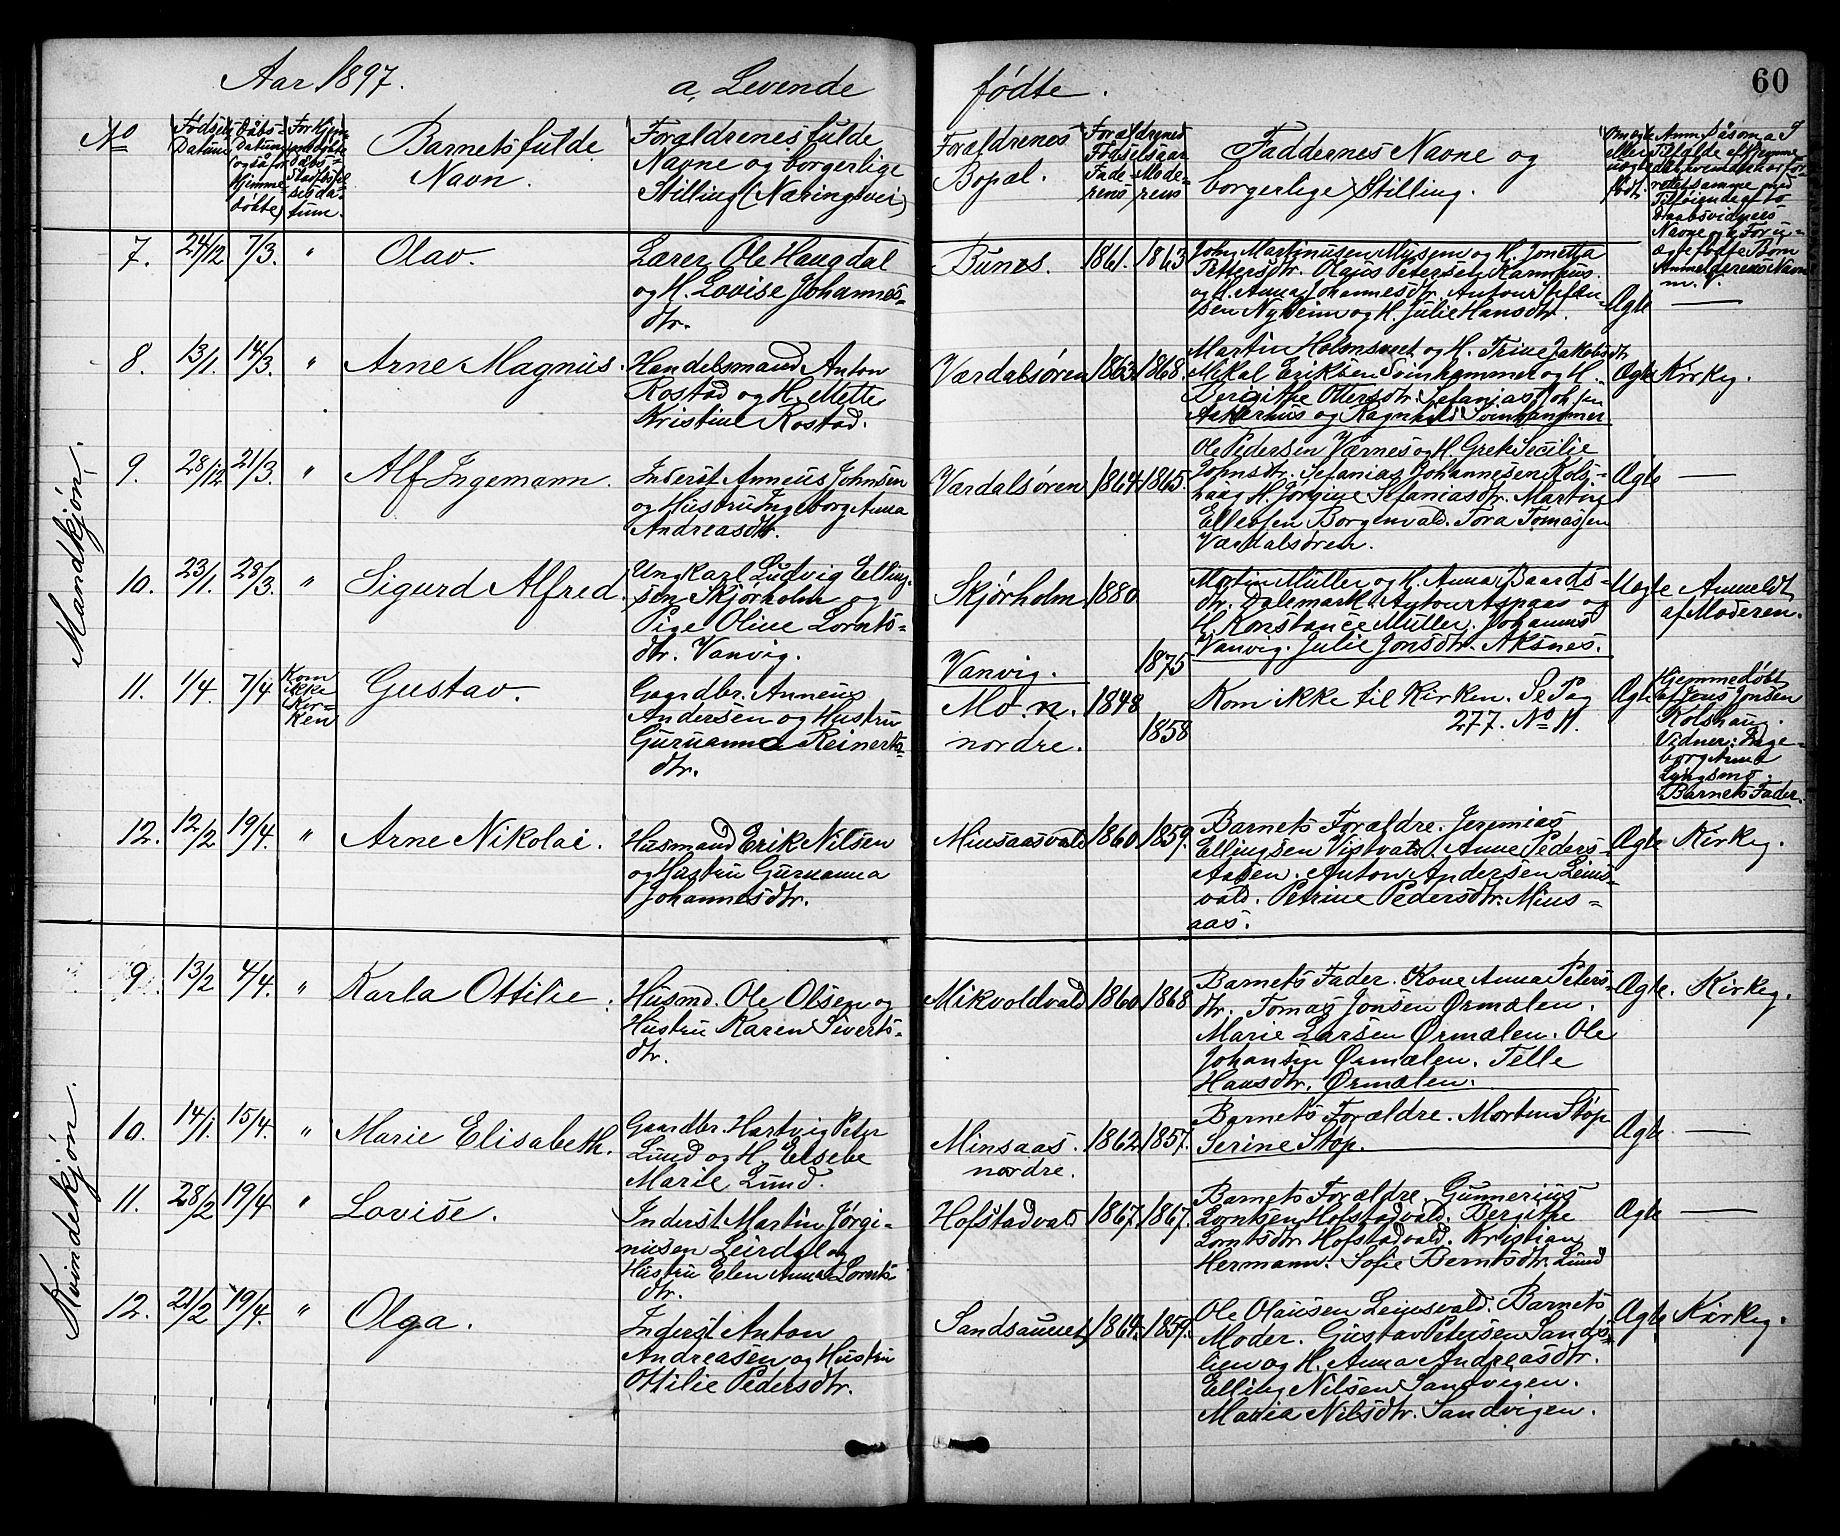 Aar 1897. a, Levende fødte. 60
No
Fødsels Datum
Daabs-Datum (ogsaa for Hjemmedøbte)
Barnets fulde Navn.
Forældrenes fulde Navne og borgerlige Stilling (Næringsvei)
Forældrenes Bopæl.
Forældrenes Fødselsaar
Faderens
Moderens
Faddernes Navne og borgerlige Stilling.
Mandkjøn.
7. 24/12 7/3. " Olav.
Lærer Ole Haugdal
og H. Lovise Johannes-
dtr.
Bunes. 1861. 1863
John Martinusen Mysem og H. Jonetta
Pettersdtr. Olaus Petersen Karmhus.
og H. Anna Johannesdtr. Antour Stefan-
sen Nyheim og H. Julie Hansdtr.
Ægte —
8. 13/1. 14/3. " Arne Magnus.
Handelsmand Anton
Rostad og H. Mette
Kristine Rostad.
Værdalsøren 1863. 1868.
Martin Holmsveet og H. Trine Jakobsdtr
Mikal Eriksen Svinhammer og H.
Berigithe Ottersdtr. Sefanias Joh.sen
og Ragnhild Svinhammer
Ægte Kirkeg.
9. 28/12 21/3. " Alf Ingemann.
Inderst Anneus Johnsen
og Hustru Ingeborg Anna
Andreasdtr.
Værdalsøren 1864. 1865.
Ole Pedersen Værnes og H. Grete Secilie
Johnsdtr. Sefanias Johannesen Kols-
haug H. Jørgine Sefaniasdtr. Martin
Ellevsen Borgenvald. Tora Tomassen
Værdalsøren.
Ægte —
10. 23/1. 28/3. " Sigurd Alfred.
Ungkarl Ludvig Elling-
sen Skjørholm og
Pige Oline Lornts-
dtr. Vanvig.
Skjørholm 1880
Vanvig. 1875
Martin Müller og H. Anna Baards-
dtr. Dalemark. Antour Aspaas og
H. Konstance Müller. Johannes
Vanvig. Julie Jonsdtr. Aksnes.
Uægte Anmeldt
af Moderen.
11. 1/4. 7/4 Kom
ikke i
Kir-
ken
Gustav.
Gaardbr. Anneus
Andersen og Hustru
Guruanna Reinerts-
dtr.
Mo. n.
nordre.
1848
1858
Kom ikke til Kirken. Se Pag
277. No 11.
Ægte
Hjemmedøbt
af Jens Jonsen
Kolshaug.
Vidner: Inge-
borg Anna
Lyngsmo.
Barnets Fader.
12. 12/2 19/4. " Arne Nikolai.
Husmand Erik Nilsen
og Hustru Guruanna
Johannesdtr.
Minsaasvald 1860. 1859.
Barnets Forældre. Jeremias
Ellingsen Vistvald. Anne Peders-
Aasen. Anton Andersen Leins-
vald. Petrine Pedersdtr. Mins-
aas.
Ægte Kirkeg.
Kvindekjøn.
9. 13/2 4/4. " Karla Ottilie.
Husmd. Ole Olsen og
Hustru Karen Siverts-
dtr.
Mikvoldvald 1860. 1868
Barnets Fader. Kone Anna Peters-
dtr. Tomas Jonsen Ørmælen.
Marie Larsen Ørmælen. Ole
Johansen Ørmælen. Telle
Hansdtr. Ørmælen.
Ægte. Kirkeg.
10. 14/1. 15/4. " Marie Elisabeth.
Gaardbr. Hartvig Peter
Lund og H. Elsebe
Marie Lund.
Minsaas
nordre.
1862. 1857.
Barnets Forældre. Morten Stop
Serine Stop.
Ægte —
11. 28/2 19/4 " Lovise.
Inderst Martin Jørgi-
niusen Leirdal og
Hustru Elen Anna Lornts-
dtr.
Hofstadvald 1867. 1867.
Barnets Forældre. Gunnerius
Lorntsen Hofstadvald. Bergithe
Lorntsdtr. Hofstadvald. Kristian
Hermann. Sofie Berntsdtr. Lund
Ægte —
12. 21/2 19/4. " Olga.
Inderst Anton
Andreasen og Hustru
Ottilie Pedersdtr.
Sandsaunet 1864. 1859.
Ole Olausen Leinsvald. Barnets
Moder. Gustav Petersen Sands-
lien og H. Anna Andreasdtr.
Elling Nilsen Sandvigen.
Maria Nilsdtr. Sandvigen.
Ægte Kirkeg.